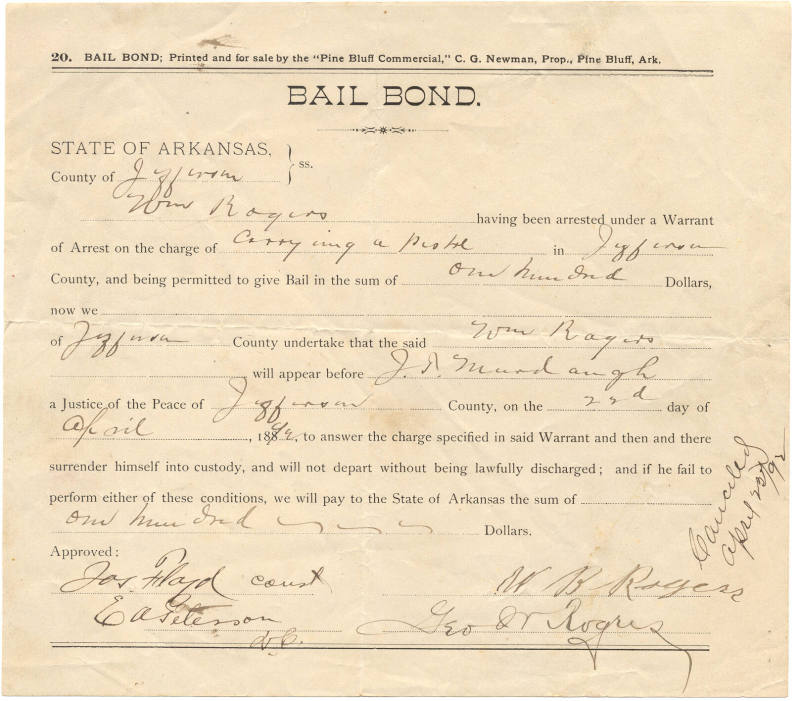 20. BAIL BOND; Printed and for sale by the "Pine Bluff Commercial," C. G. Newman, Prop., Pine Bluff, Ark.
BAIL BOND.
STATE OF ARKANSAS,
County of Jefferson } ss.
Wm Rogers having been arrested under a Warrant
of Arrest on the charge of Carrying a Pistol in Jefferson
County, and being permitted to give Bail in the sum of One hundred Dollars,
now we
of Jefferson County undertake that the said Wm Rogers
, will appear before J. Murdaugh
a Justice of the Peace of Jefferson County, on the 22d day of
April, 1892, to answer the charge specified in said Warrant and then and there
surrender himself into custody, and will not depart without being lawfully discharged; and if he fail to
perform either of these conditions, we will pay to the State of Arkansas the sum of
One hundred Dollars.
Approved:
Jos. Floyd const
E A Peterson
D.C.
W B Rogers
Geo W Rogers
Canceled
April 22d/92